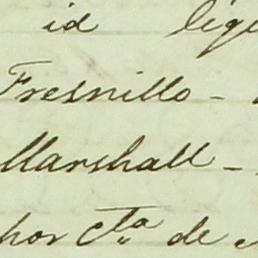 id
Fresnillo -
Marshall -
por cta de